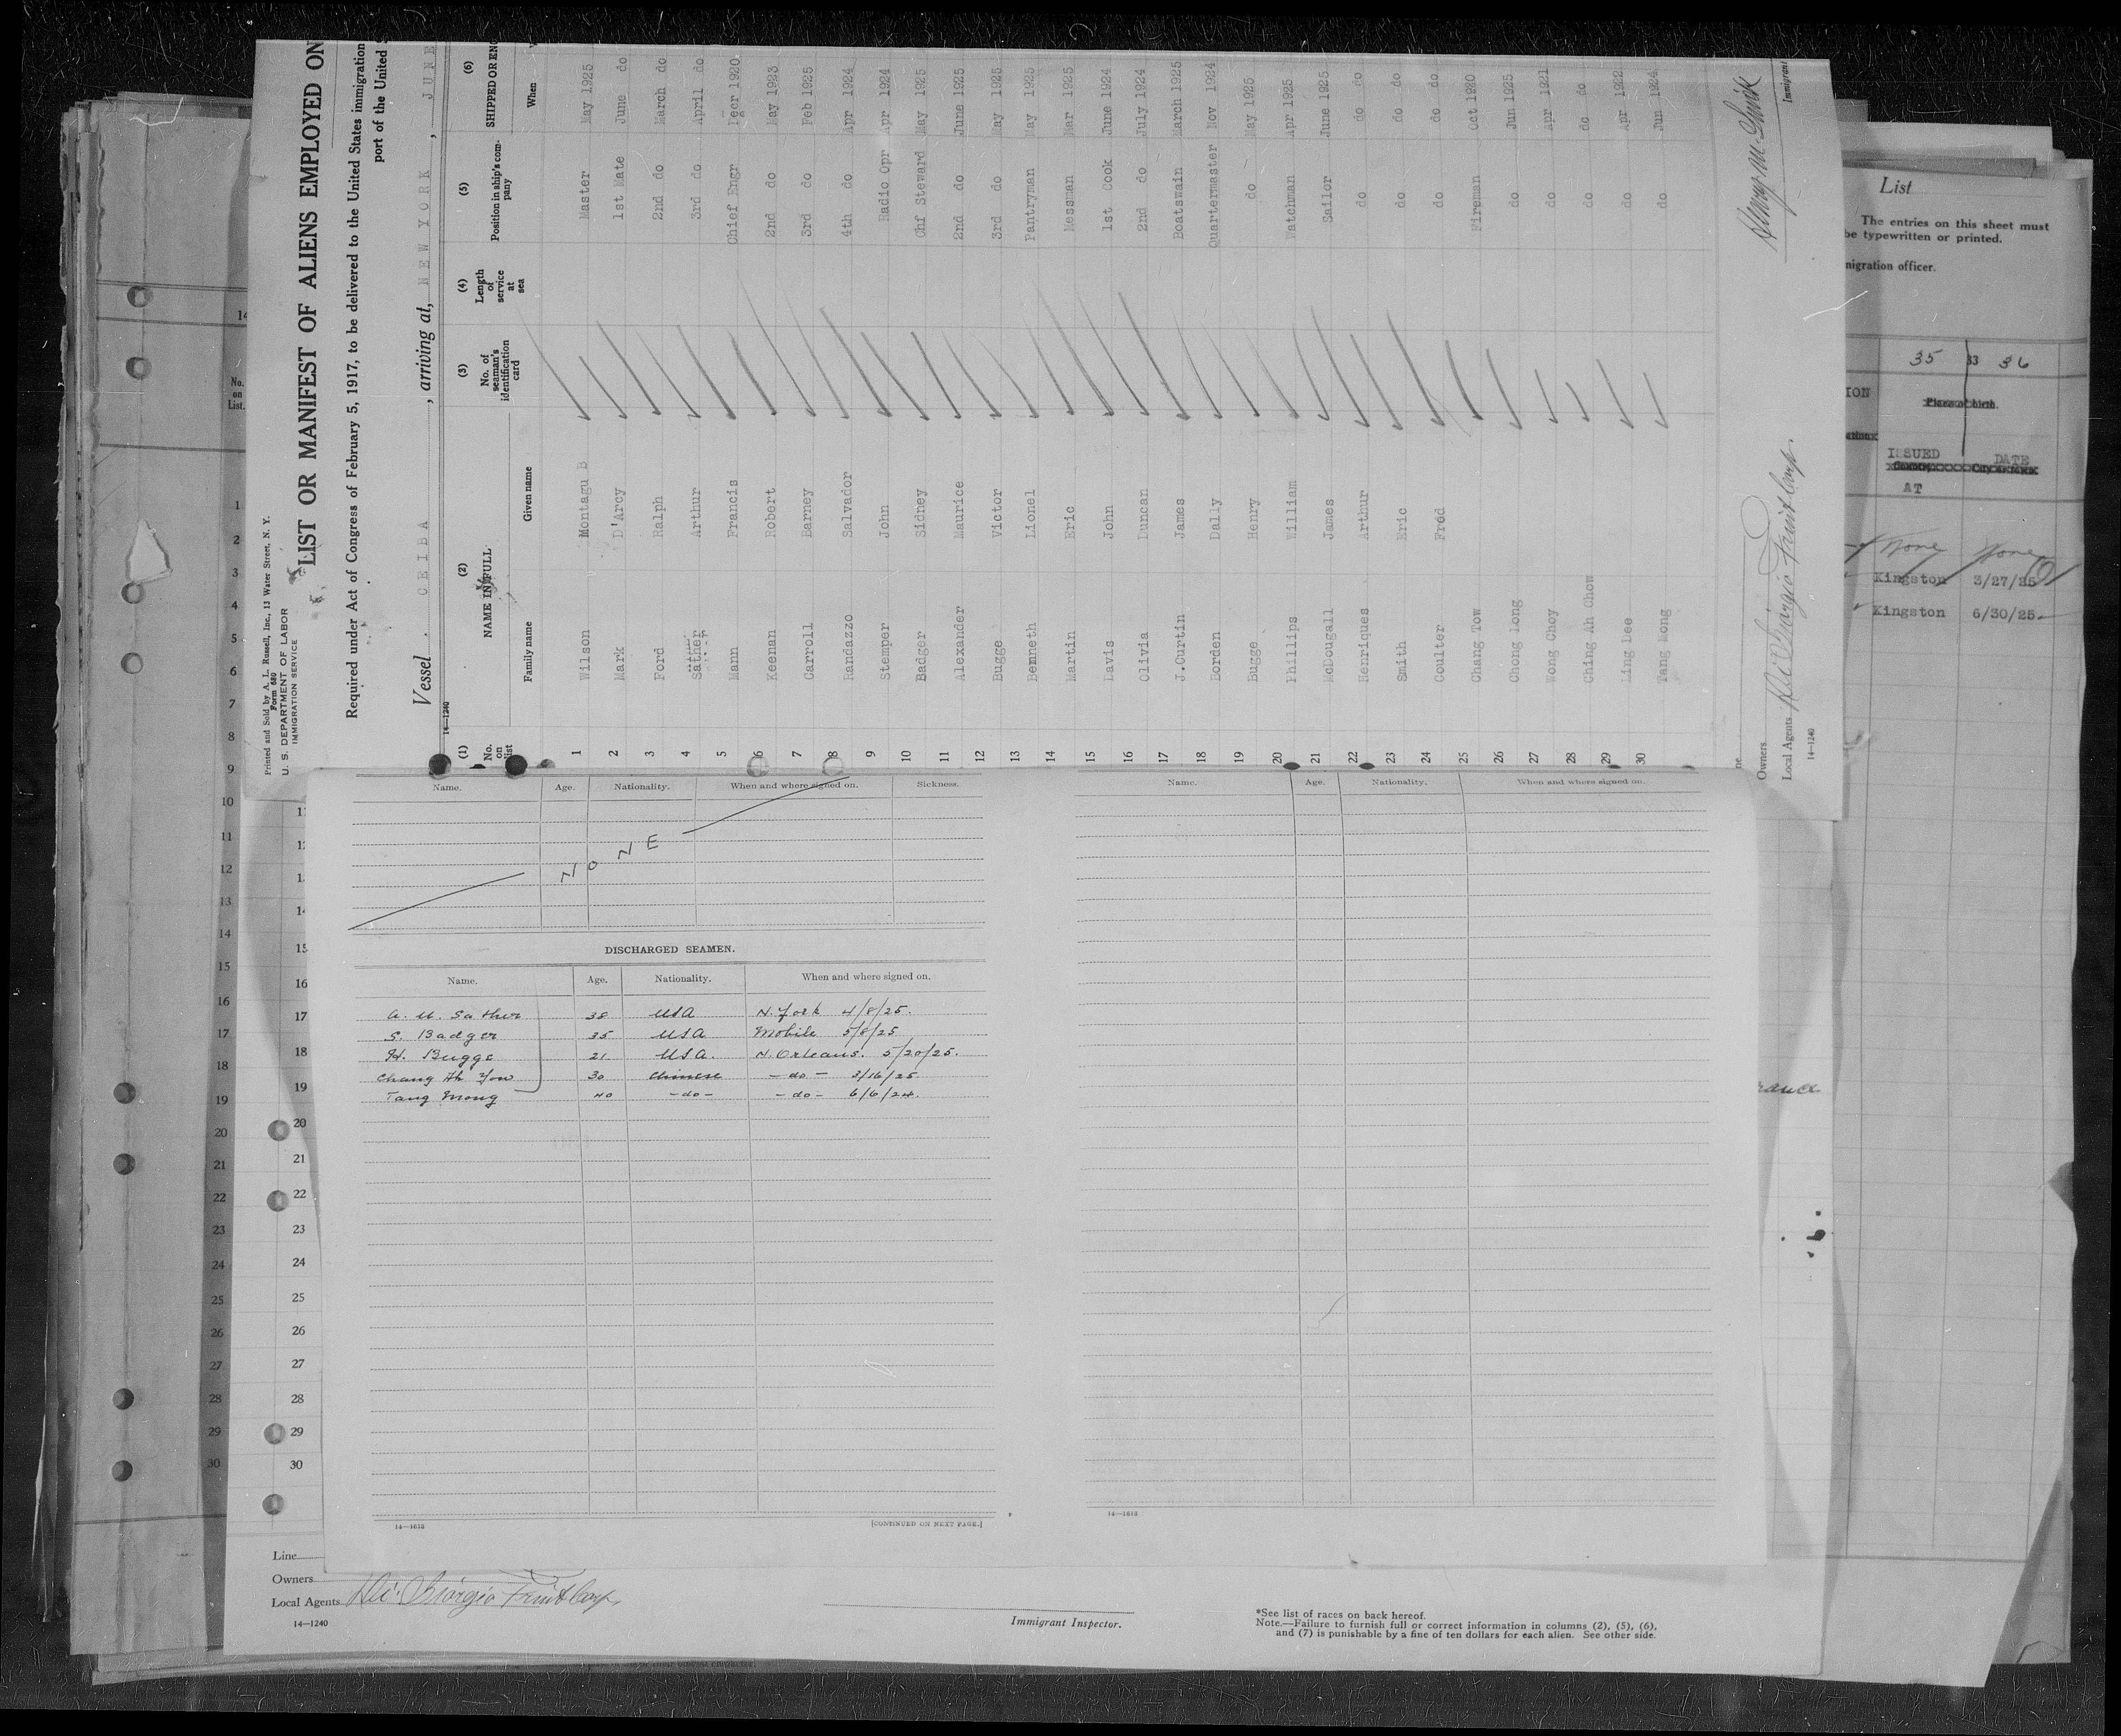 Printed and Sold by A. L. Russell, Inc., 13 Water Street, N. Y.
Form 680
U. S. DEPARTMENT OF LABOR
IMMIGRATION SERVICE
LIST OR MANIFEST OF ALIENS EMPLOYED ON
Required under Act of Congress of February 5, 1917, to be delivered to the United States immigration
port of the United
Vessel CEIBA, arriving at, NEW YORK, JUNE
14—1240
(1) (2) (3) (4) (5) (6)
No. on list NAME IN FULL No. of seaman's identification card Length of service at sea Position in ship's company SHIPPED OR ENG
Family name Given name When
1 Wilson Montagu B Master May 1925
2 Mark D'Arcy 1st Mate June do
3 Ford Ralph 2nd do March do
4 Sather Arthur 3rd do April do
5 Mann Francis Chief Engr Decr 1920
6 Keenan Robert 2nd do May 1923
7 Carroll Barney 3rd do Feb 1925
8 Randazzo Salvador 4th do Apr 1924
9 Stemper John Radio Opr Apr 1924
10 Badger Sidney Chf Steward May 1925
11 Alexander Maurice 2nd do June 1925
12 Bugge Victor 3rd do May 1925
13 Benneth Lionel Pantryman May 1925
14 Martin Eric Messman Mar 1925
15 Davis John 1st Cook June 1924
16 Olivia Duncan 2nd do July 1924
17 J.Curtin James Boatswain March 1925
18 Borden Dally Quartermaster Nov 1924
19 Bugge Henry do May 1925
20 Phillips William Watchman Apr 1925
21 McDougall James Sailor June 1925
22 Henriques Arthur do do do
23 Smith Eric do do do
24 Coulter Fred do do do
25 Chang Tow Fireman Oct 1920
26 Chong Long do Jun 1925
27 Wong Choy do Apr 1921
28 Ching Ah Chow do do do
29 Ling Dee do Apr 1922
30 Tang Mong do Jun 1924
Owners
Local Agents Di Giorgio Fruit Corp.
14—1240
Immigrant
List
The entries on this sheet must
be typewritten or printed.
nigration officer.
35 33 36
ION
Place of birth.
ISSUED DATE
AT
None None
Kingston 3/27/25
Kingston 6/30/25
14
No. on List.
1
2
3
4
5
6
7
8
9
10
11
12
13
14
15
16
17
18
19
20
21
22
23
24
25
26
27
28
29
30
Name. Age. Nationality. When and where signed on. Sickness.
NONE
DISCHARGED SEAMEN.
Name. Age. Nationality. When and where signed on.
A. M. Sather 38 USA N. York 4/8/25.
S. Badger 35 USA Mobile 5/8/25
H. Bugge 21 USA. N. Orleans. 5/20/25.
Chang Ah Yow 30 Chinese —do— 3/16/25
Tang Mong 40 —do— —do— 6/6/24.
14—1618 [CONTINUED ON NEXT PAGE.]
Name. Age. Nationality. When and where signed on.
14—1618
15
16
17
18
19
20
21
22
23
24
25
26
27
28
29
30
Line
Owners
Local Agents Di Giorgio Fruit Corp.
14—1240
Immigrant Inspector.
*See list of races on back hereof.
Note.—Failure to furnish full or correct information in columns (2), (5), (6),
and (7) is punishable by a fine of ten dollars for each alien. See other side.